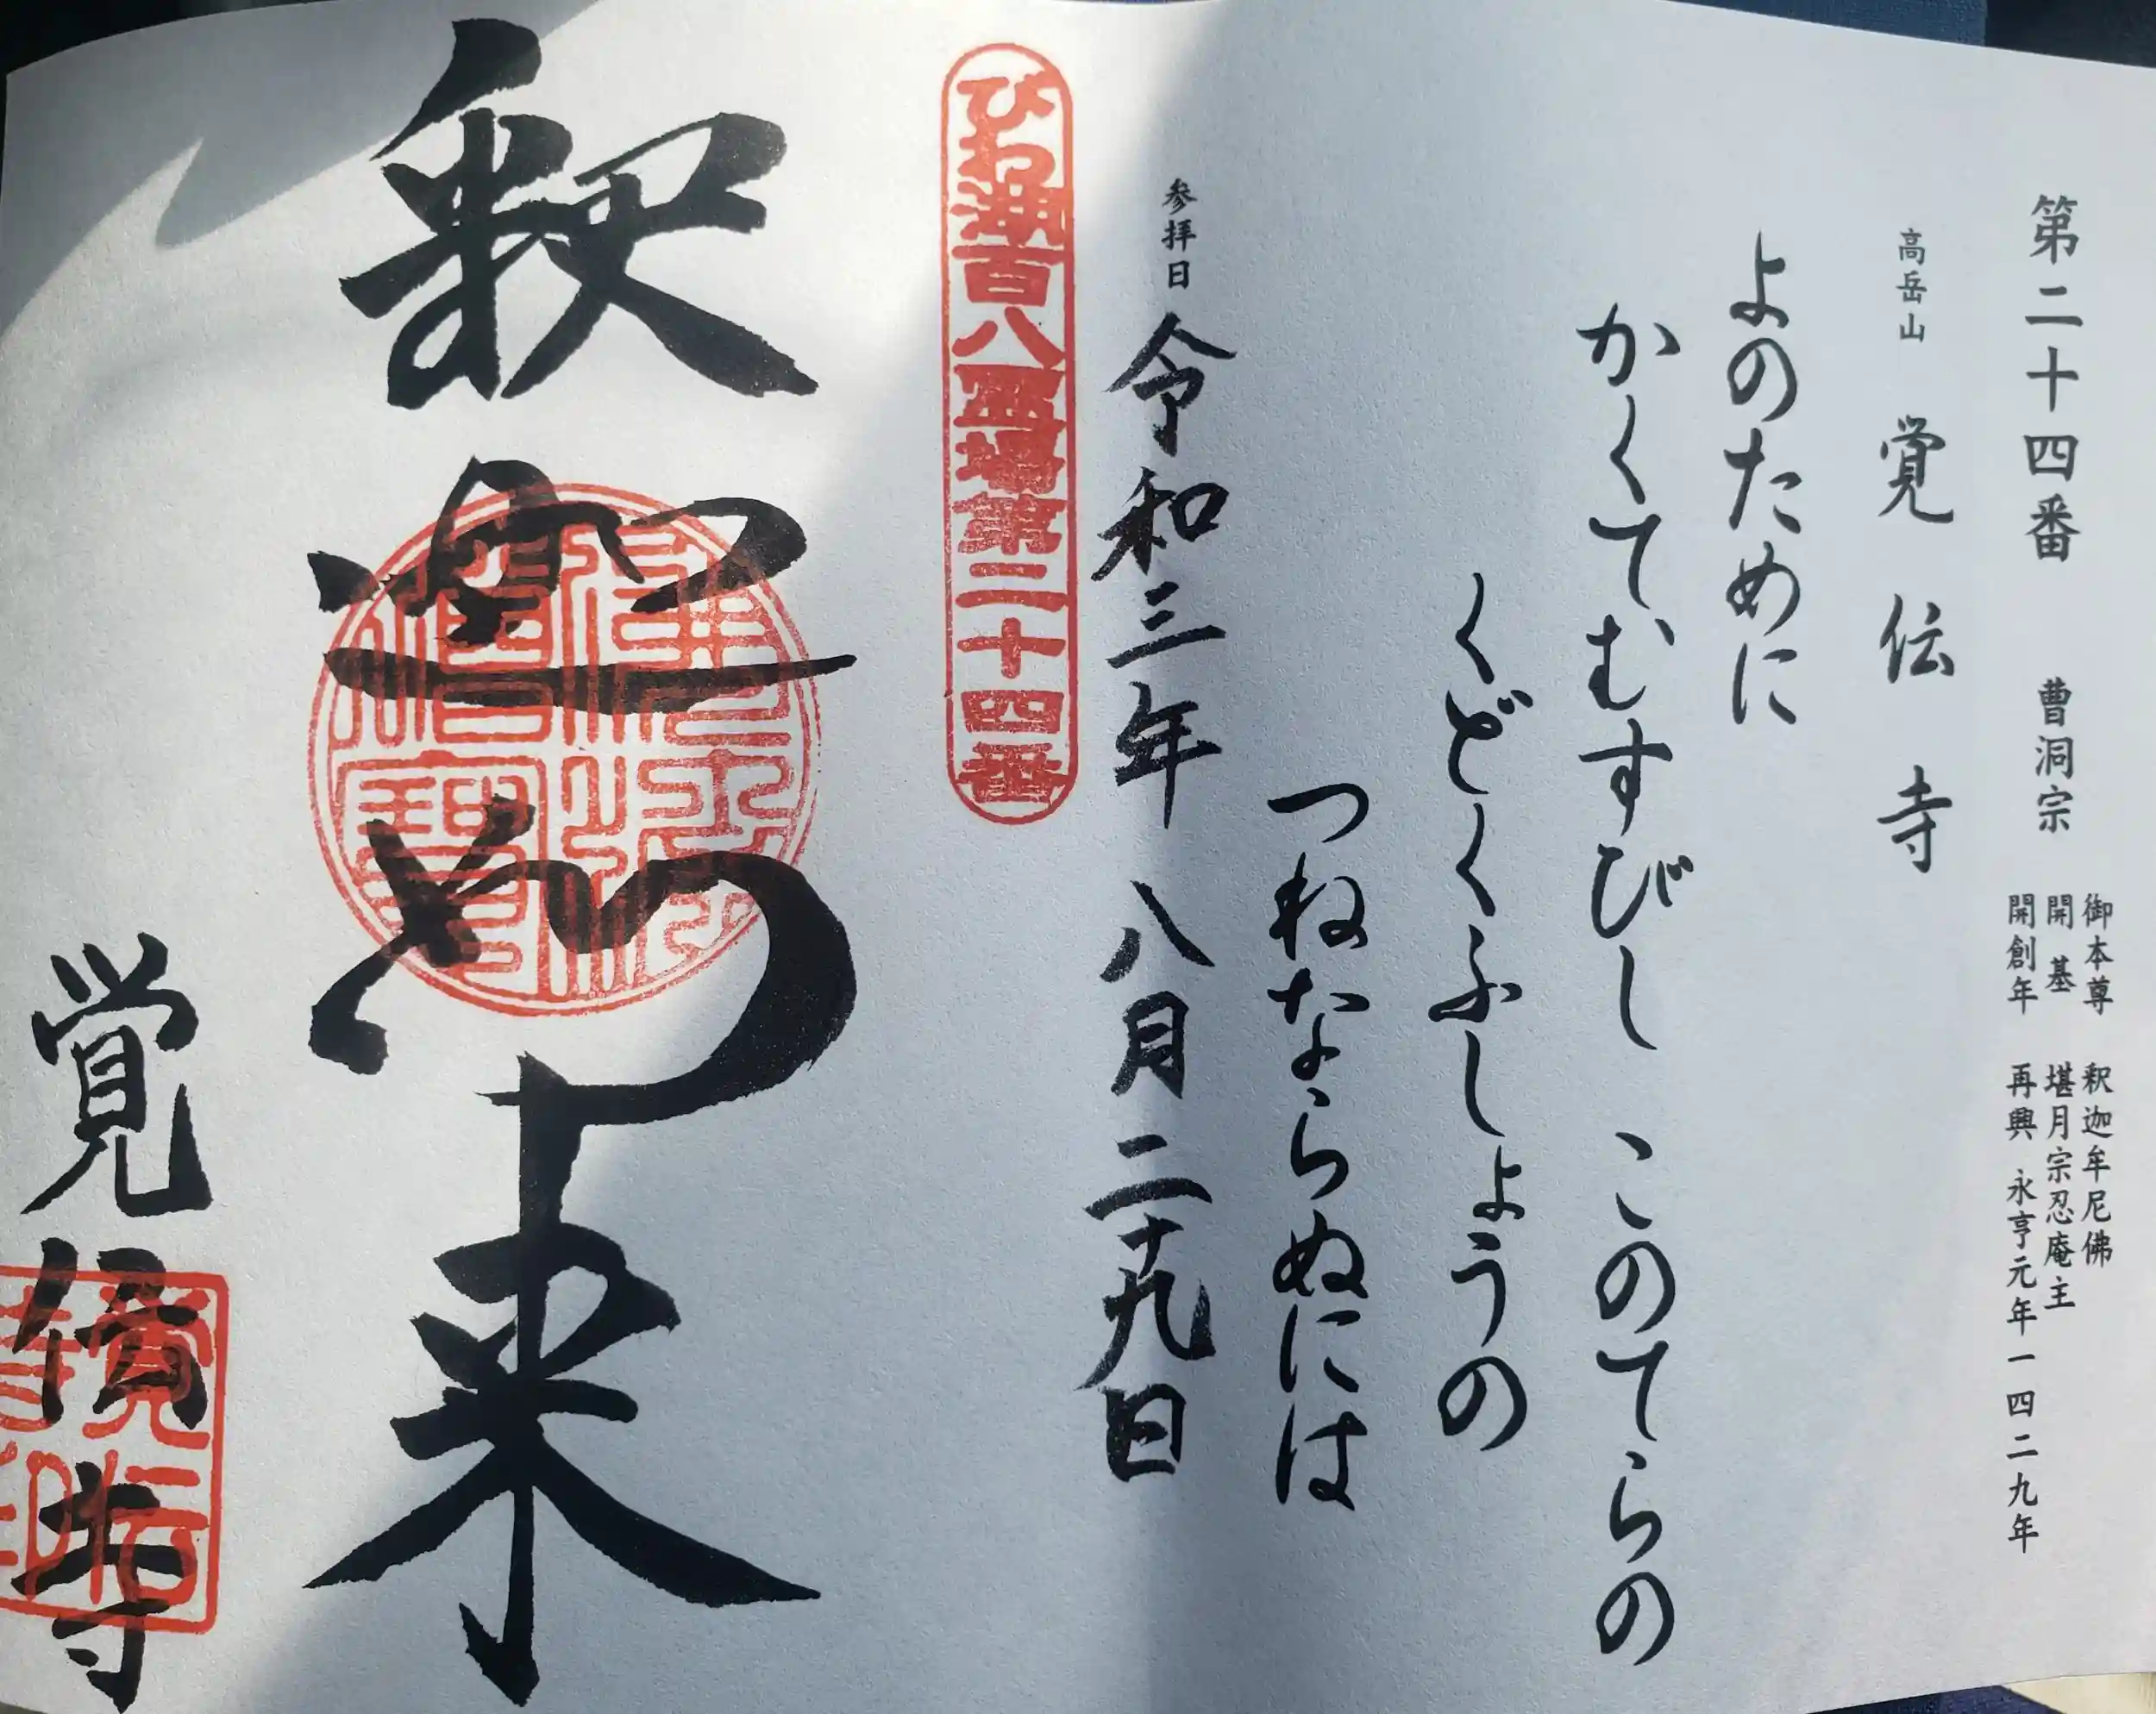 第二十四番 曹洞宗
御本尊 釈迦牟尼佛
開基 堪月宗忍庵主
開創年 再興 永亨元年一四二九年
高岳山 覚伝寺
よのために
かくてむすびし このてらの
くどくふしょうの
つねならぬには
参拝日 令和三年八月二十九日
びわ湖百八霊場第二十四番
釈迦如来
佛法僧寶
覚傳寺
覚伝寺印